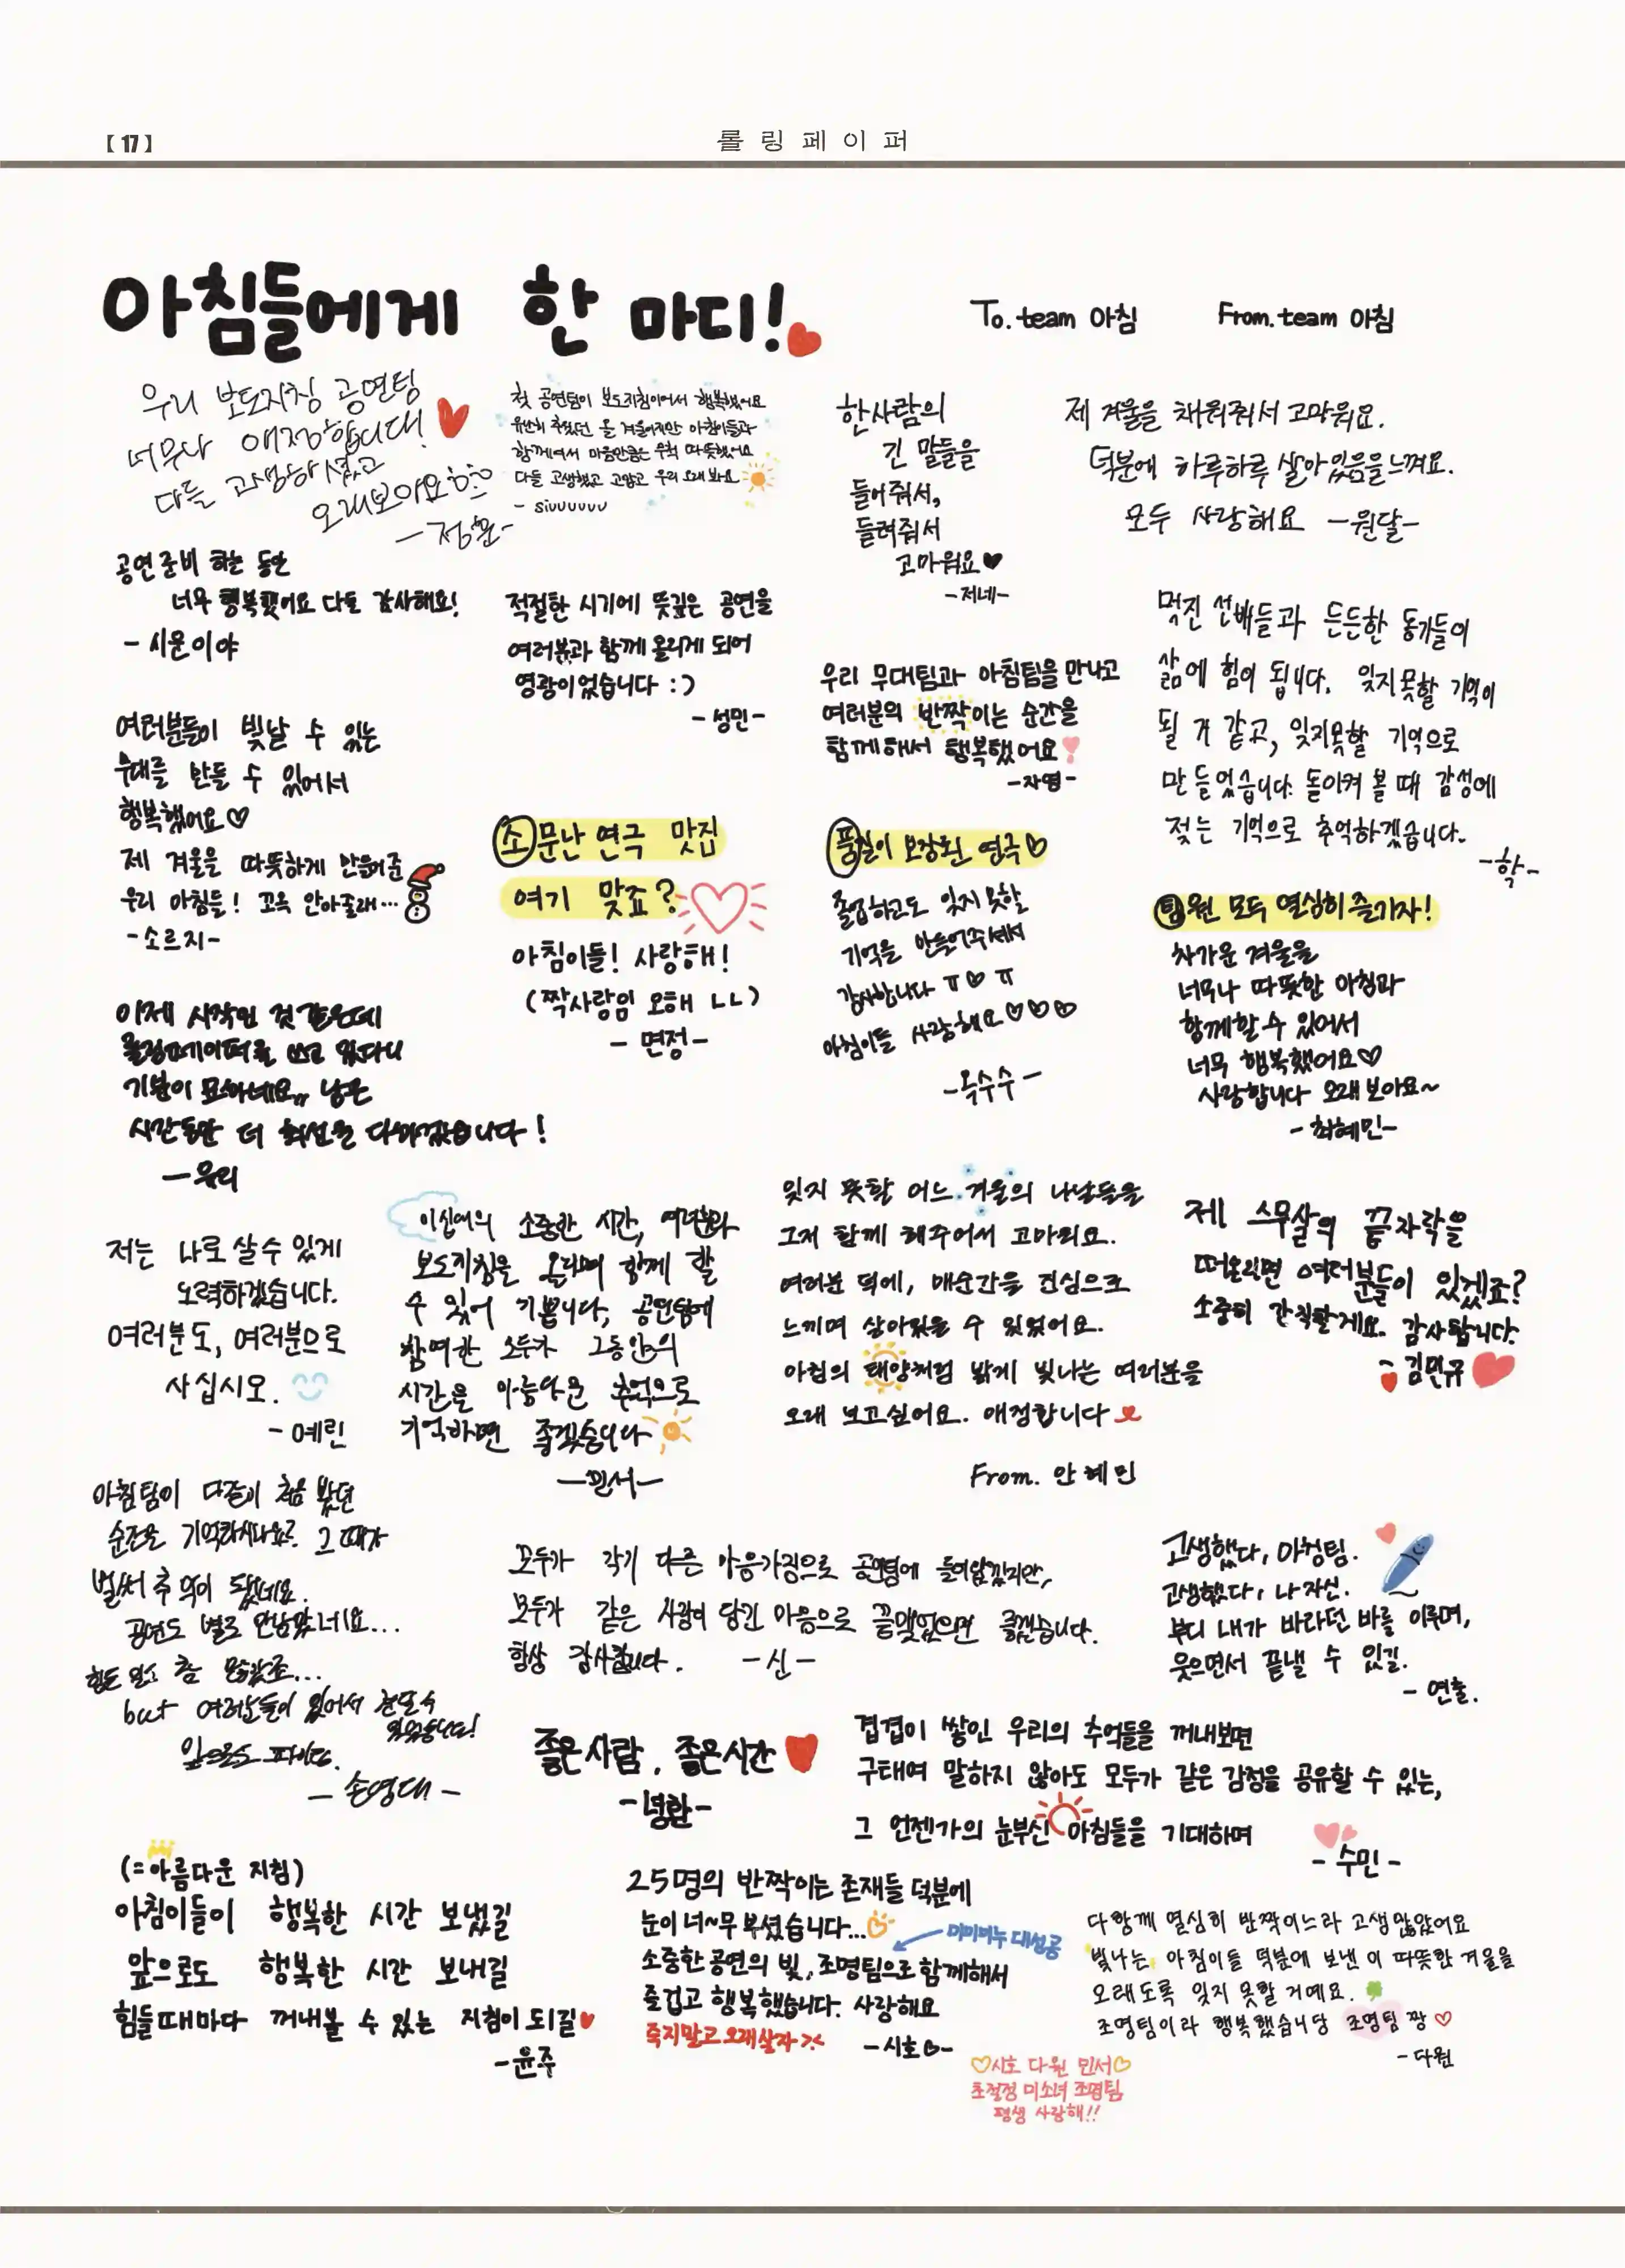 【17】
롤링페이퍼
아침들에게 한 마디!
To. team 아침 From. team 아침
우리 보도지침 공연팀
너무나 애정합니다!
다들 고생하셨고
오래보아요
-정윤-
첫 공연팀이 보도지침이어서 행복했어요
유난히 추웠던 올 겨울이지만 아침이들과
함께여서 마음만큼은 무척 따뜻했어요
다들 고생했고 고맙고 우리 오래 봐요
- siuuuuuu
한사람의
긴 말들을
들어줘서,
들려줘서
고마워요♥
-저네-
제 겨울을 채워줘서 고마워요.
덕분에 하루하루 살아있음을 느껴요.
모두 사랑해요 -원달-
공연 준비 하는 동안
너무 행복했어요 다들 감사해요!
- 시윤이야
적절한 시기에 뜻깊은 공연을
여러분과 함께 올리게 되어
영광이었습니다 :)
- 성민-
우리 무대팀과 아침팀을 만나고
여러분의 반짝이는 순간을
함께해서 행복했어요
-자영-
멋진 선배들과 든든한 동기들이
삶에 힘이 됩니다. 잊지못할 기억이
될 거 같고, 잊지못할 기억으로
만들었습니다. 돌이켜 볼 때 감성에
젖는 기억으로 추억하겠습니다.
-학-
여러분들이 빛날 수 있는
무대를 만들 수 있어서
행복했어요♡
제 겨울을 따뜻하게 만들어준
우리 아침들! 꼬옥 안아줄래...
-소르지-
소문난 연극 맛집
여기 맞죠?
아침이들! 사랑해!
(짝사랑임 오해 ㄴㄴ)
- 면정-
품질이 보장된 연극♡
졸업하고도 잊지 못할
기억을 만들어주셔서
감사합니다 ㅠ♡ㅠ
아침이들 사랑해요♡♡♡
-옥수수-
팀원 모두 열심히 즐기자!
차가운 겨울을
너무나 따뜻한 아침과
함께할 수 있어서
너무 행복했어요♡
사랑합니다 오래 보아요~
- 최혜민-
이제 시작인 것 같은데
롤링페이퍼를 쓰고 있다니
기분이 묘하네요,, 남은
시간동안 더 최선을 다하겠습니다!
-우리
저는 나로 살 수 있게
노력하겠습니다.
여러분도, 여러분으로
사십시오.
- 예린
소중한 시간, 여러분과
보도지침을 올리며 함께 할
수 있어 기쁩니다, 공연팀에
참여한 모두가 그동안의
시간을 아름다운 추억으로
기억하면 좋겠습니다
-민서-
잊지 못할 어느 겨울의 나날들을
그저 함께 해주어서 고마워요.
여러분 덕에, 매순간을 진심으로
느끼며 살아있을 수 있었어요.
아침의 태양처럼 밝게 빛나는 여러분을
오래 보고싶어요. 애정합니다
From. 안혜민
제 스무살의 끝자락을
떠올리면 여러분들이 있겠죠?
소중히 간직할게요. 감사합니다.
- 김민규
아침팀이 다같이 처음 봤던
순간을 기억하시나요? 그 때가
벌써 추억이 됐네요.
공연도 별로 안남았네요...
힘든 일도 참 많았죠...
but 여러분들이 있어서
앞으로도 파이팅.
- 손영대 -
모두가 각기 다른 마음가짐으로 공연팀에 들어왔겠지만,
모두가 같은 사랑이 담긴 마음으로 끝맺었으면 좋겠습니다.
항상 감사합니다. -신-
고생했다, 아침팀.
고생했다, 나 자신.
부디 내가 바라던 바를 이루며,
웃으면서 끝낼 수 있길.
- 연출.
좋은사람, 좋은시간
-령란-
겹겹이 쌓인 우리의 추억들을 꺼내보면
구태여 말하지 않아도 모두가 같은 감정을 공유할 수 있는,
그 언젠가의 눈부신 아침들을 기대하며
- 수민 -
(=아름다운 지침)
아침이들이 행복한 시간 보냈길
앞으로도 행복한 시간 보내길
힘들 때마다 꺼내볼 수 있는 지침이 되길♥
-윤주
25명의 반짝이는 존재들 덕분에
눈이 너~무 부셨습니다...
미미미누 대성공
소중한 공연의 빛, 조명팀으로 함께해서
즐겁고 행복했습니다. 사랑해요
죽지말고 오래살자 ><
-시호♡-
♡시호 다원 민서♡
초절정 미소녀 조명팀
평생 사랑해!!
다함께 열심히 반짝이느라 고생많았어요
빛나는 아침이들 덕분에 보낸 이 따뜻한 겨울을
오래도록 잊지 못할 거예요.
조명팀이라 행복했습니당 조명팀 짱♡
- 다원